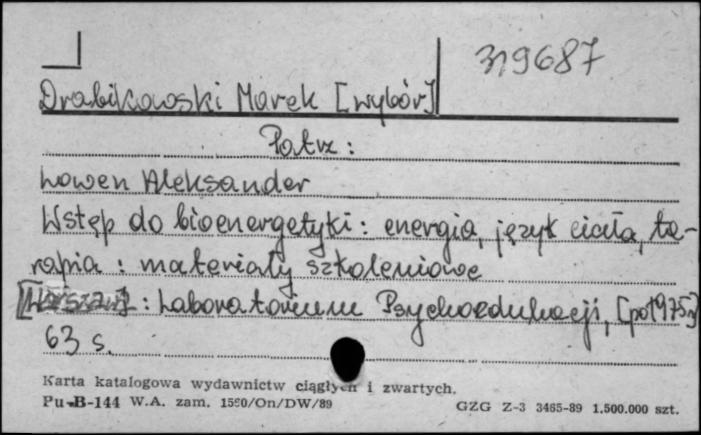 319687
Drabikowski Marek [wybór]
Patrz:
Lowen Aleksander
Wstęp do bioenergetyki: energia, język ciała, te-
rapia: materiały szkoleniowe
[Warszawa]: Laboratorium Psychoedukacji, [po 1975]
63 s.
Karta katalogowa wydawnictw ciągłych i zwartych.
Pu-B-144 W.A. zam. 1580/On/DW/89 GZG Z-3 3465-89 1.500.000 szt.